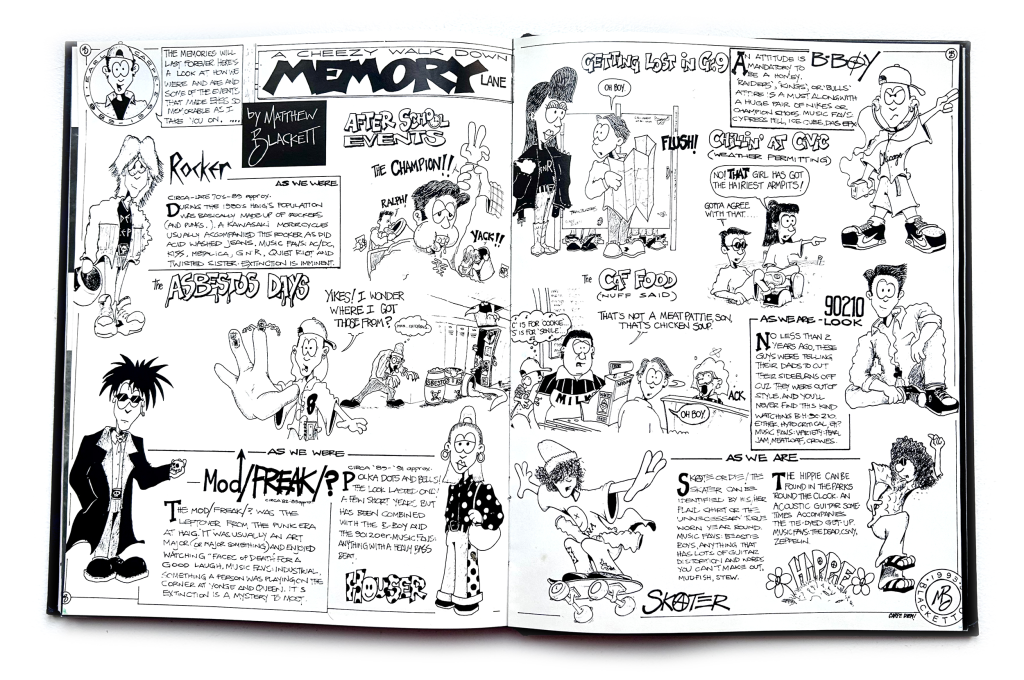 THE MEMORIES WILL
LAST FOREVER. HERE'S
A LOOK AT HOW WE
WERE AND ARE AND
SOME OF THE EVENTS
THAT MADE
MEMORABLE AS I
TAKE YOU ON.....
A CHEEZY WALK DOWN
MEMORY LANE
by MATTHEW
BLACKETT
Rocker
AS WE WERE
CIRCA-LATE 70's-89 approx.
DURING THE 1980's HAIG'S POPULATION
WAS BASICALLY MADE UP OF ROCKERS
(AND PUNKS.). A KAWASAKI MOTORCYCLE
USUALLY ACCOMPANIED THE ROCKER AS DID
ACID WASHED JEANS. MUSIC FAVS: AC/DC,
KISS, METALICA, G N R, QUIET RIOT AND
TWISTED SISTER. EXTINCTION IS IMMINENT.
AFTER SCHOOL
EVENTS
THE CHAMPION!!
RALPH!
YACK!!
the ASBESTOS DAYS
YIKES! I WONDER
WHERE I GOT
THOSE FROM?
8
AS WE WERE
Mod/FREAK/?
CIRCA 82-89approx
THE MOD/FREAK/? WAS THE
LEFTOVER FROM THE PUNK ERA
AT HAIG. IT WAS USUALLY AN ART
MAJOR (OR MAJOR SOMETHING) AND ENJOYED
WATCHING "FACES OF DEATH" FOR A
GOOD LAUGH. MUSIC FAVS: INDUSTRIAL,
SOMETHING A PERSON WAS PLAYING ON THE
CORNER AT YONGE AND QUEEN. IT'S
EXTINCTION IS A MYSTERY TO MOST.
CIRCA '89-'91 approx.
POLKA DOTS AND BELLS!
THE LOOK LASTED ONLY
A FEW SHORT YEARS BUT
HAS BEEN COMBINED
WITH THE B-BOY AND
THE 90210er. MUSIC FAVS:
ANYTHING WITH A HEAVY BASS
BEAT.
HOUSER
GETTING LOST IN GR.9
OH BOY.
FLUSH!
B-BOY
AN ATTITUDE IS
MANDATORY TO
BE A HOMEY.
'RAIDERS', 'KINGS', OR 'BULLS'
ATTIRE IS A MUST ALONG WITH
A HUGE PAIR OF NIKES OR
CHAMPION SHOES. MUSIC FAVS:
CYPRESS HILL, ICE CUBE, DAS EFX
CHILLIN' AT CIVIC
(WEATHER PERMITTING)
NO! THAT GIRL HAS GOT
THE HAIRIEST ARMPITS!
GOTTA AGREE
WITH THAT...
Chicago
THE CAF FOOD
(NUFF SAID)
'C' IS FOR COOKIE...
'S' IS FOR 'SMILE'...
THAT'S NOT A MEAT PATTIE, SON,
THAT'S CHICKEN SOUP.
MILK
ACK
OH BOY
AS WE ARE
90210
-LOOK
NO LESS THAN 2
YEARS AGO, THESE
GUYS WERE TELLING
THEIR DADS TO CUT
THEIR SIDEBURNS OFF
CUZ THEY WERE OUT OF
STYLE. AND YOU'LL
NEVER FIND THIS KIND
WATCHING B.H. 90210.
EITHER. HYPOCRITICAL, EH?
MUSIC FAVS: VARIETY: PEARL
JAM, MEATLOAF, CROWES.
AS WE ARE
SKATE OR DIE! THE
SKATER CAN BE
IDENTIFIED BY HIS/HER
PLAID SHIRT OR THE
UNNECESSARY TUQUE
WORN YEAR ROUND.
MUSIC FAVS: BEASTIE
BOYS, ANYTHING THAT
HAS LOTS OF GUITAR
DISTORTION AND WORDS
YOU CAN'T MAKE OUT,
MUDFISH, STEW.
SKATER
THE HIPPIE CAN BE
FOUND IN THE PARKS
'ROUND THE CLOCK. AN
ACOUSTIC GUITAR SOME
TIMES ACCOMPANIES
THE TIE-DYED GET-UP.
MUSIC FAVS: THE DEAD, CSNY,
ZEPPELIN.
HIPPIE
CARPE DIEM!
1993
MB
BLACKETT